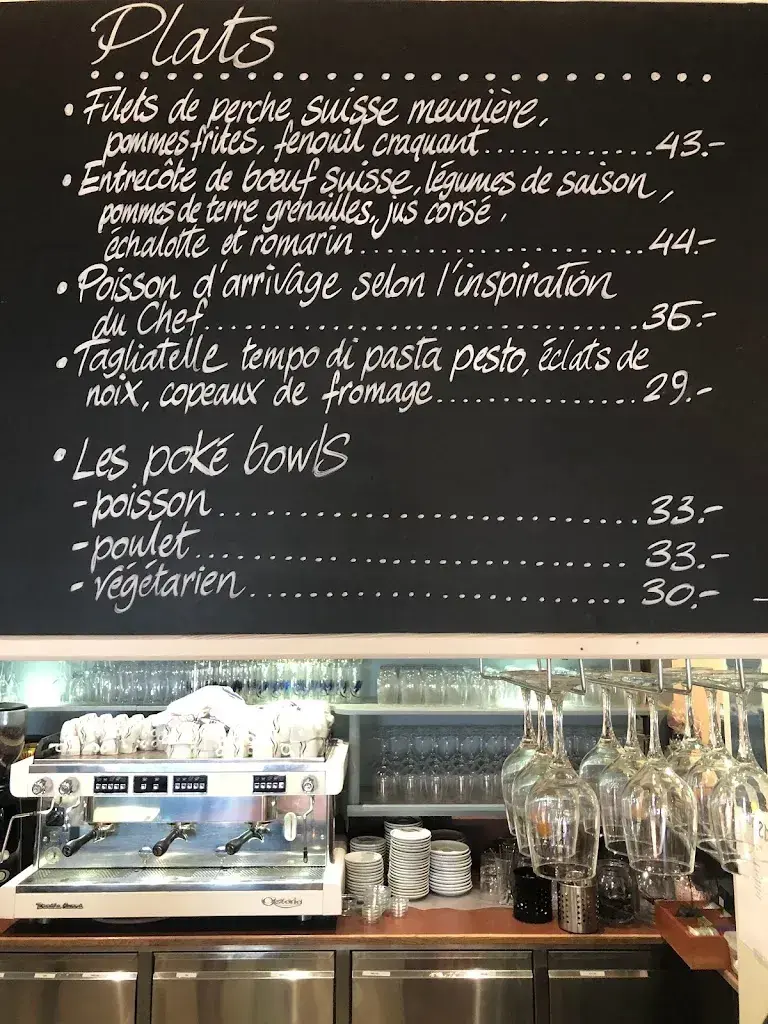 Plats
• Filets de perche suisse meunière,
pommes frites, fenouil craquant..............43.-
• Entrecôte de bœuf suisse, légumes de saison,
pommes de terre grenailles, jus corsé,
échalotte et romarin......................44.-
• Poisson d'arrivage selon l'inspiration
du Chef.................................36.-
• Tagliatelle tempo di pasta pesto, éclats de
noix, copeaux de fromage..............29.-
• Les poké bowls
- poisson...............................33.-
- poulet................................33.-
- végétarien............................30.-
Astoria